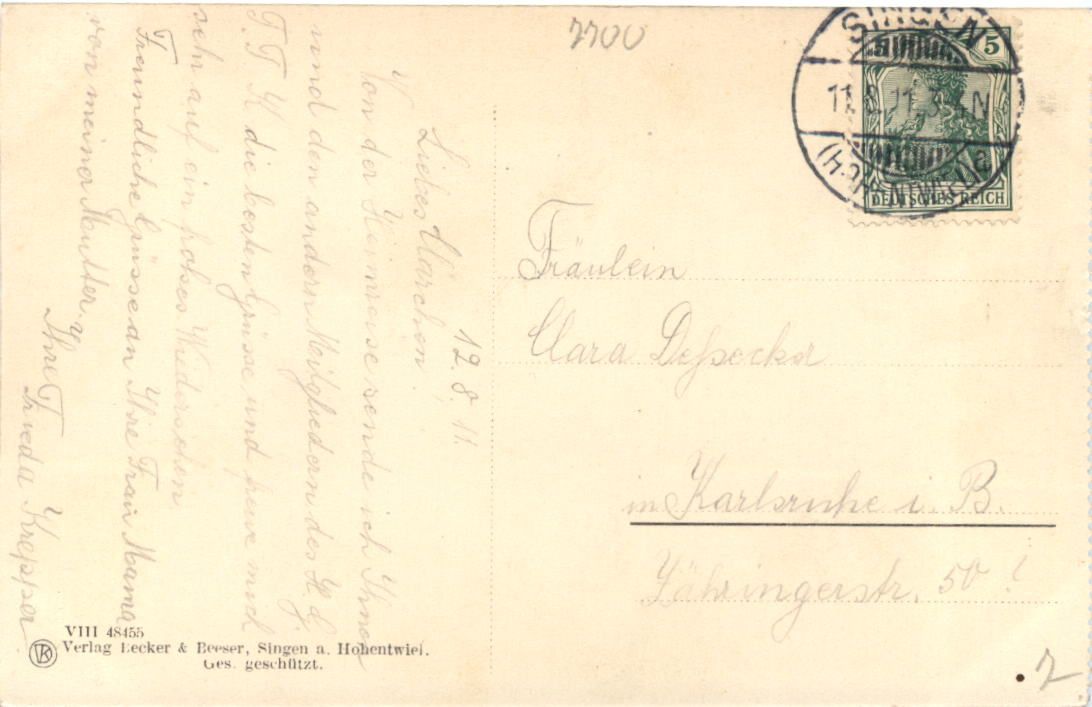 7700
SINGEN
(HOHENTWIEL)
5
DEUTSCHES REICH
12. 8. 11.
Liebes Clärchen.
Von der Heimreise sende ich Ihnen
und den andern Mitgliedern des
die besten Grüsse und freue mich
sehr auf ein frohes Wiedersehen
Freundliche Grüsse an Ihre Frau Mama
von meiner Mutter.
Ihre
Frieda Krepper
Fräulein
Clara Dessecker
in Karlsruhe i. B.
Zähringerstr. 50
VIII 48455
Verlag Lecker & Beeser, Singen a. Hohentwiel.
Ges. geschützt.